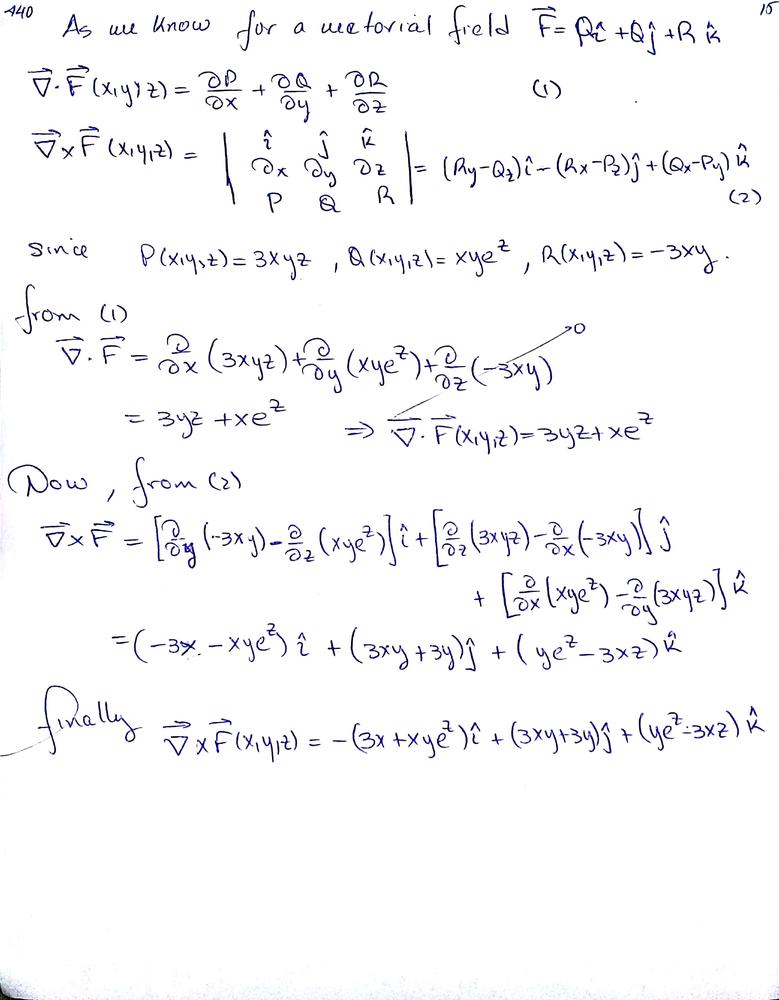 440 15
As we know for a vectorial field F⃗ = Pî + Qĵ + R k̂
∇⃗·F⃗(x,y,z) = ∂P/∂x + ∂Q/∂y + ∂R/∂z (1)
∇⃗×F⃗(x,y,z) = | î ĵ k̂
∂x ∂y ∂z | = (Ry-Qz)î - (Rx-Pz)ĵ + (Qx-Py)k̂
P Q R (2)
since P(x,y,z) = 3xyz , Q(x,y,z) = xye^z , R(x,y,z) = -3xy.
from (1)
∇⃗·F⃗ = ∂/∂x (3xyz) + ∂/∂y (xye^z) + ∂/∂z (-3xy) → 0
= 3yz + xe^z ⇒ ∇⃗·F⃗(x,y,z) = 3yz + xe^z
Now , from (2)
∇⃗×F⃗ = [∂/∂y (-3xy) - ∂/∂z (xye^z)] î + [∂/∂z (3xyz) - ∂/∂x (-3xy)] ĵ
+ [∂/∂x (xye^z) - ∂/∂y (3xyz)] k̂
= (-3x - xye^z) î + (3xy + 3y)ĵ + (ye^z - 3xz) k̂
finally ∇⃗×F⃗(x,y,z) = -(3x + xye^z)î + (3xy+3y)ĵ + (ye^z - 3xz) k̂